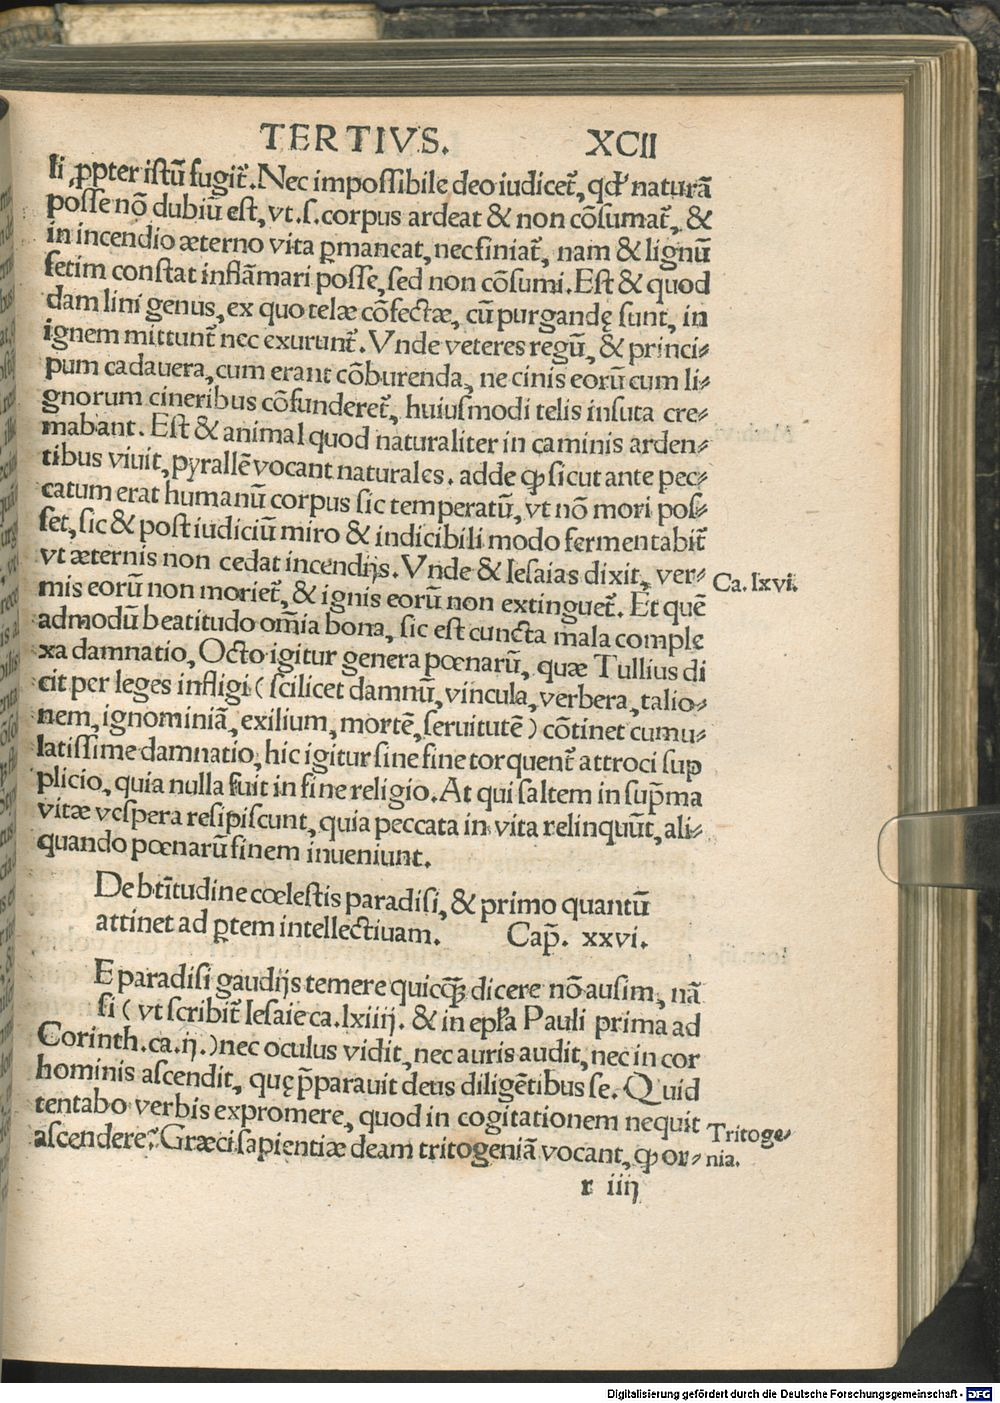 TERTIVS. XCII
li, ꝓpter istū fugit᷑. Nec impossibile deo iudicet᷑, qđ naturā
posse nō dubiū est, vt.s.corpus ardeat & non cōsumat᷑, &
in incendio æterno vita ꝑmaneat, nec finiat᷑, nam & lignū
fetim constat inflāmari posse, sed non cōsumi. Est & quod
dam lini genus, ex quo telæ cōfectæ, cū purgandę sunt, in
ignem mittunt᷑ nec exurunt᷑. Vnde veteres regū, & princi⸗
pum cadauera, cum erant cōburenda, ne cinis eorū cum li⸗
gnorum cineribus cōfunderet᷑, huiusmodi telis insuta cre⸗
mabant. Est & animal quod naturaliter in caminis arden⸗
tibus viuit, pyrallē vocant naturales. adde ꝙ sicut ante pec⸗
catum erat humanū corpus sic temperatū, vt nō mori pos⸗
set, sic & post iudiciū miro & indicibili modo fermentabit᷑
vt æternis non cedat incendijs. Vnde & Iesaias dixit, ver⸗
Ca. lxvi.
mis eorū non moriet᷑, & ignis eorū non extinguet᷑. Et quē
admodū beatitudo om̄ia bona, sic est cuncta mala comple
xa damnatio, Octo igitur genera pœnarū, quæ Tullius di
cit per leges infligi (scilicet damnū, vincula, verbera, talio⸗
nem, ignominiā, exilium, mortē, seruitutē) cōtinet cumu⸗
latissime damnatio, hic igitur sine fine torquent᷑ attroci sup
plicio, quia nulla fuit in fine religio. At qui saltem in sup̄ma
vitæ vespera resipiscunt, quia peccata in vita relinquūt, ali⸗
quando pœnarū finem inueniunt.
De bt̄itudine cœlestis paradisi, & primo quantū
attinet ad ꝑtem intellectiuam. Cap̄. xxvi.
E paradisi gaudijs temere quicꝗ̄ dicere nō ausim, nā
si (vt scribit᷑ Iesaie ca. lxiiij. & in epl̄a Pauli prima ad
Corinth. ca. ij.) nec oculus vidit, nec auris audit, nec in cor
hominis ascendit, quę p̄parauit deus diligētibus se. Quid
tentabo verbis expromere, quod in cogitationem nequit
ascendere? Græci sapientiæ deam tritogeniā vocant, ꝙ or⸗
Tritoge⸗
nia.
r iiij
Digitalisierung gefördert durch die Deutsche Forschungsgemeinschaft - DFG